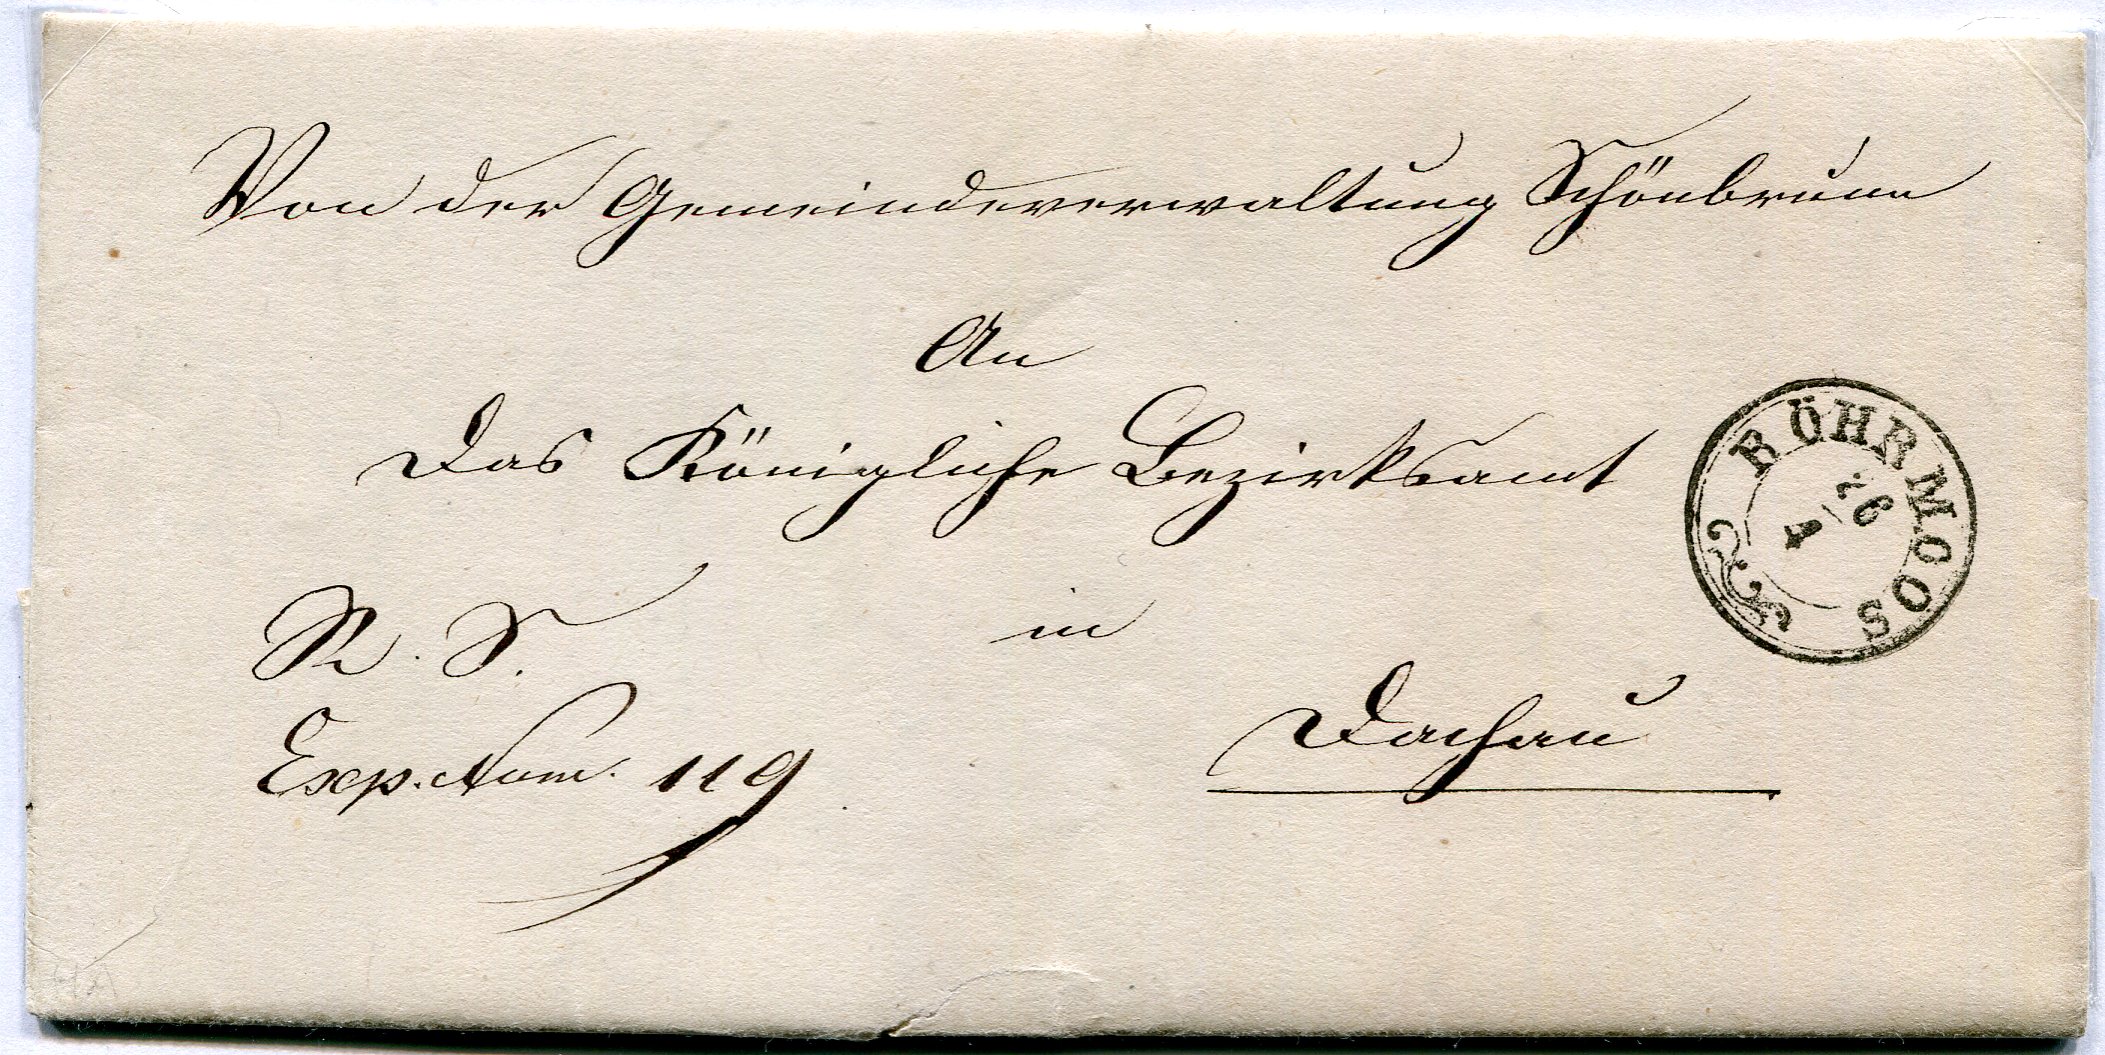 Von der Gemeindeverwaltung Schönbrunn
An
das Königliche Bezirksamt
RÖHRMOOS
26
4
R. S.
in
Exp. Num. 119
Dachau